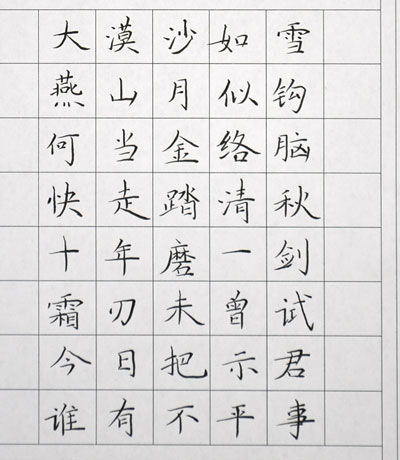 大漠沙如雪
燕山月似钩
何当金络脑
快走踏清秋
十年磨一剑
霜刃未曾试
今日把示君
谁有不平事